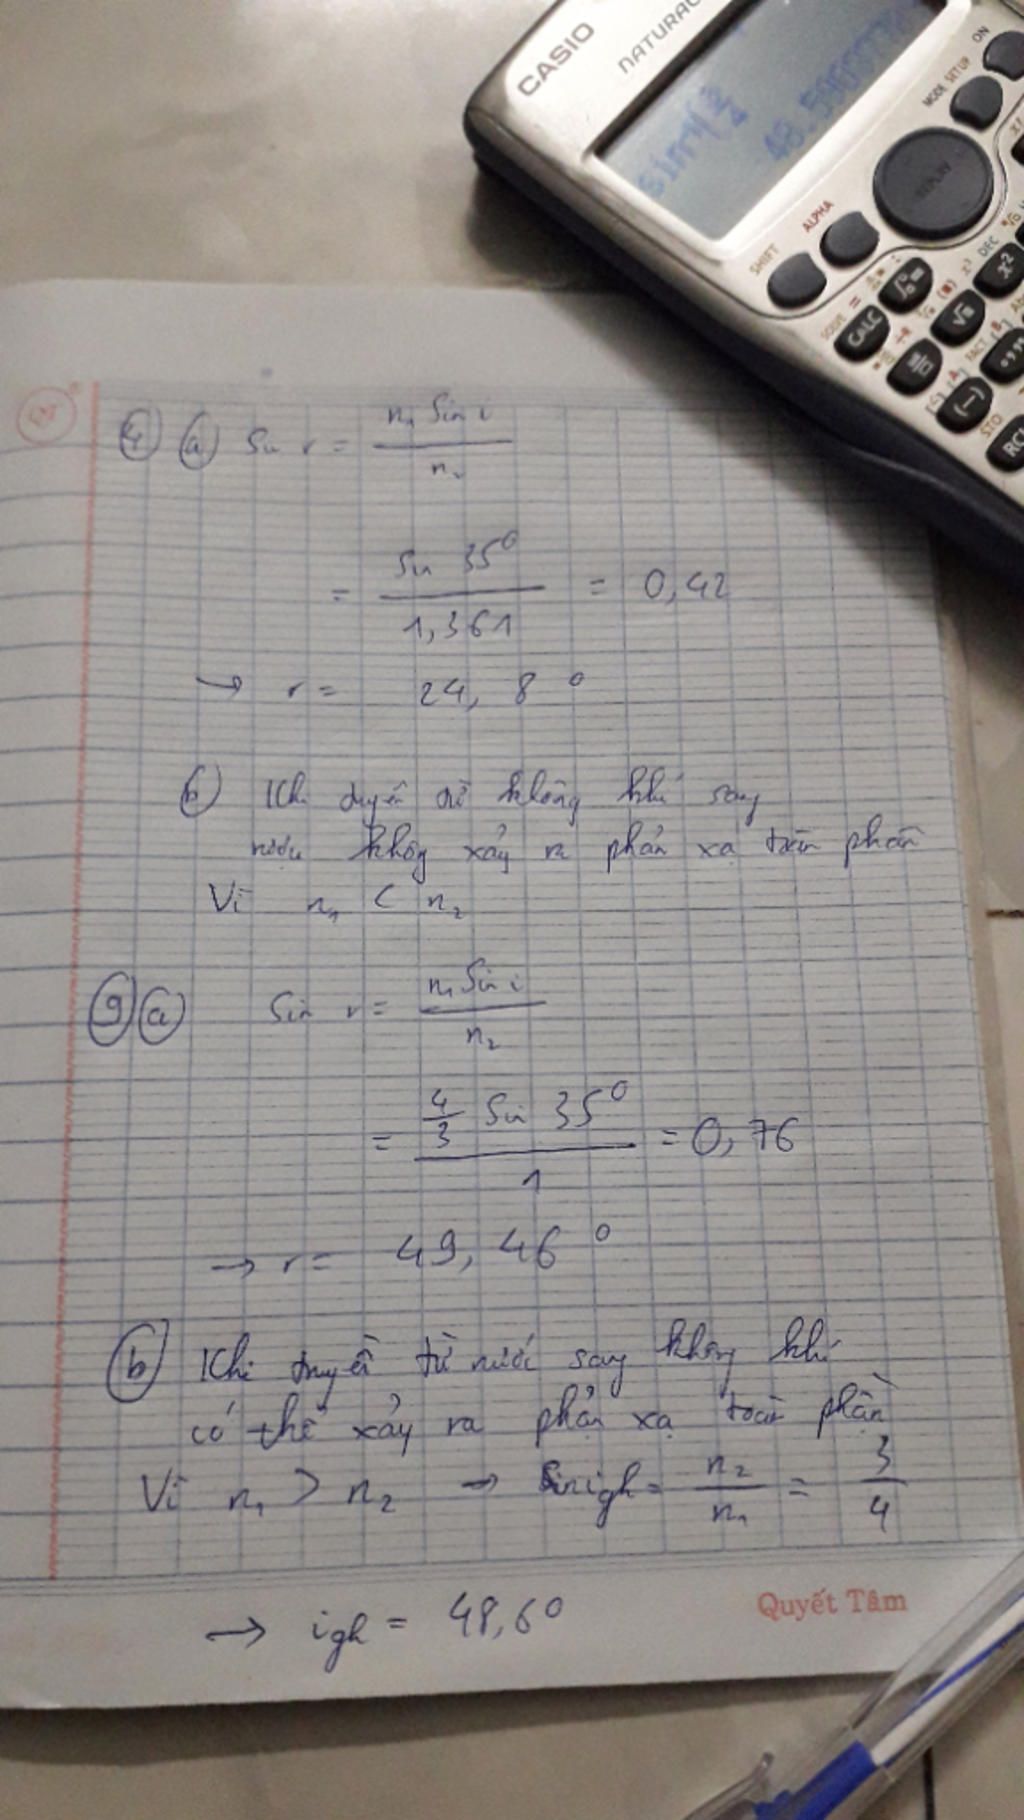 CASIO
NATURAL
sin⁻¹(3/4
48.5903778
ON
MODE SETUP
REPLAY
SHIFT
ALPHA
SOLVE =
CALC
x²
FACT
(-)
STO
RCL
4) a) Sin r = n₁ Sin i / n₂
= Sin 35⁰ / 1,361 = 0,42
→ r = 24,8⁰
b) Khi truyền từ không khí sang
nước không xảy ra phản xạ toàn phần
Vì n₁ < n₂
9) a) Sin r = n₁ Sin i / n₂
= 4/3 Sin 35⁰ / 1 = 0,76
→ r = 49,46⁰
b) Khi truyền từ nước sang không khí
có thể xảy ra phản xạ toàn phần
Vì n₁ > n₂ → Sin igh = n₂/n₁ = 3/4
→ igh = 48,6⁰
Quyết Tâm